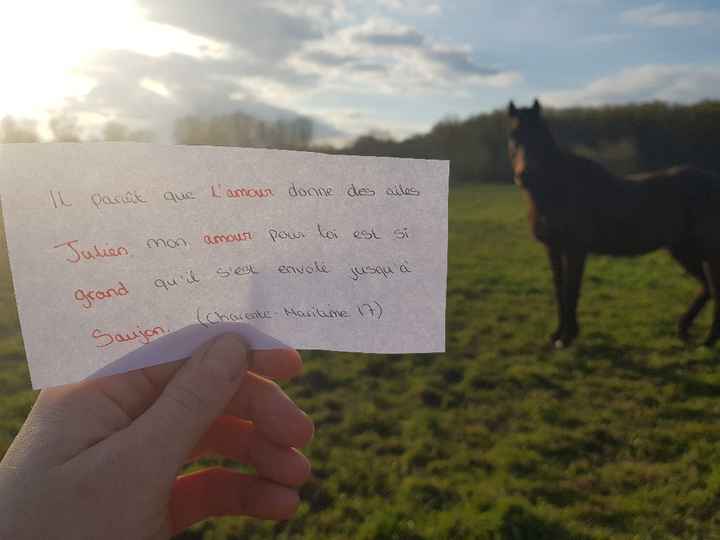 Il parait que l'amour donne des ailes
Julien, mon amour pour toi est si
grand qu'il s'est envolé jusqu'à
Saujon. (Charente-Maritime 17)